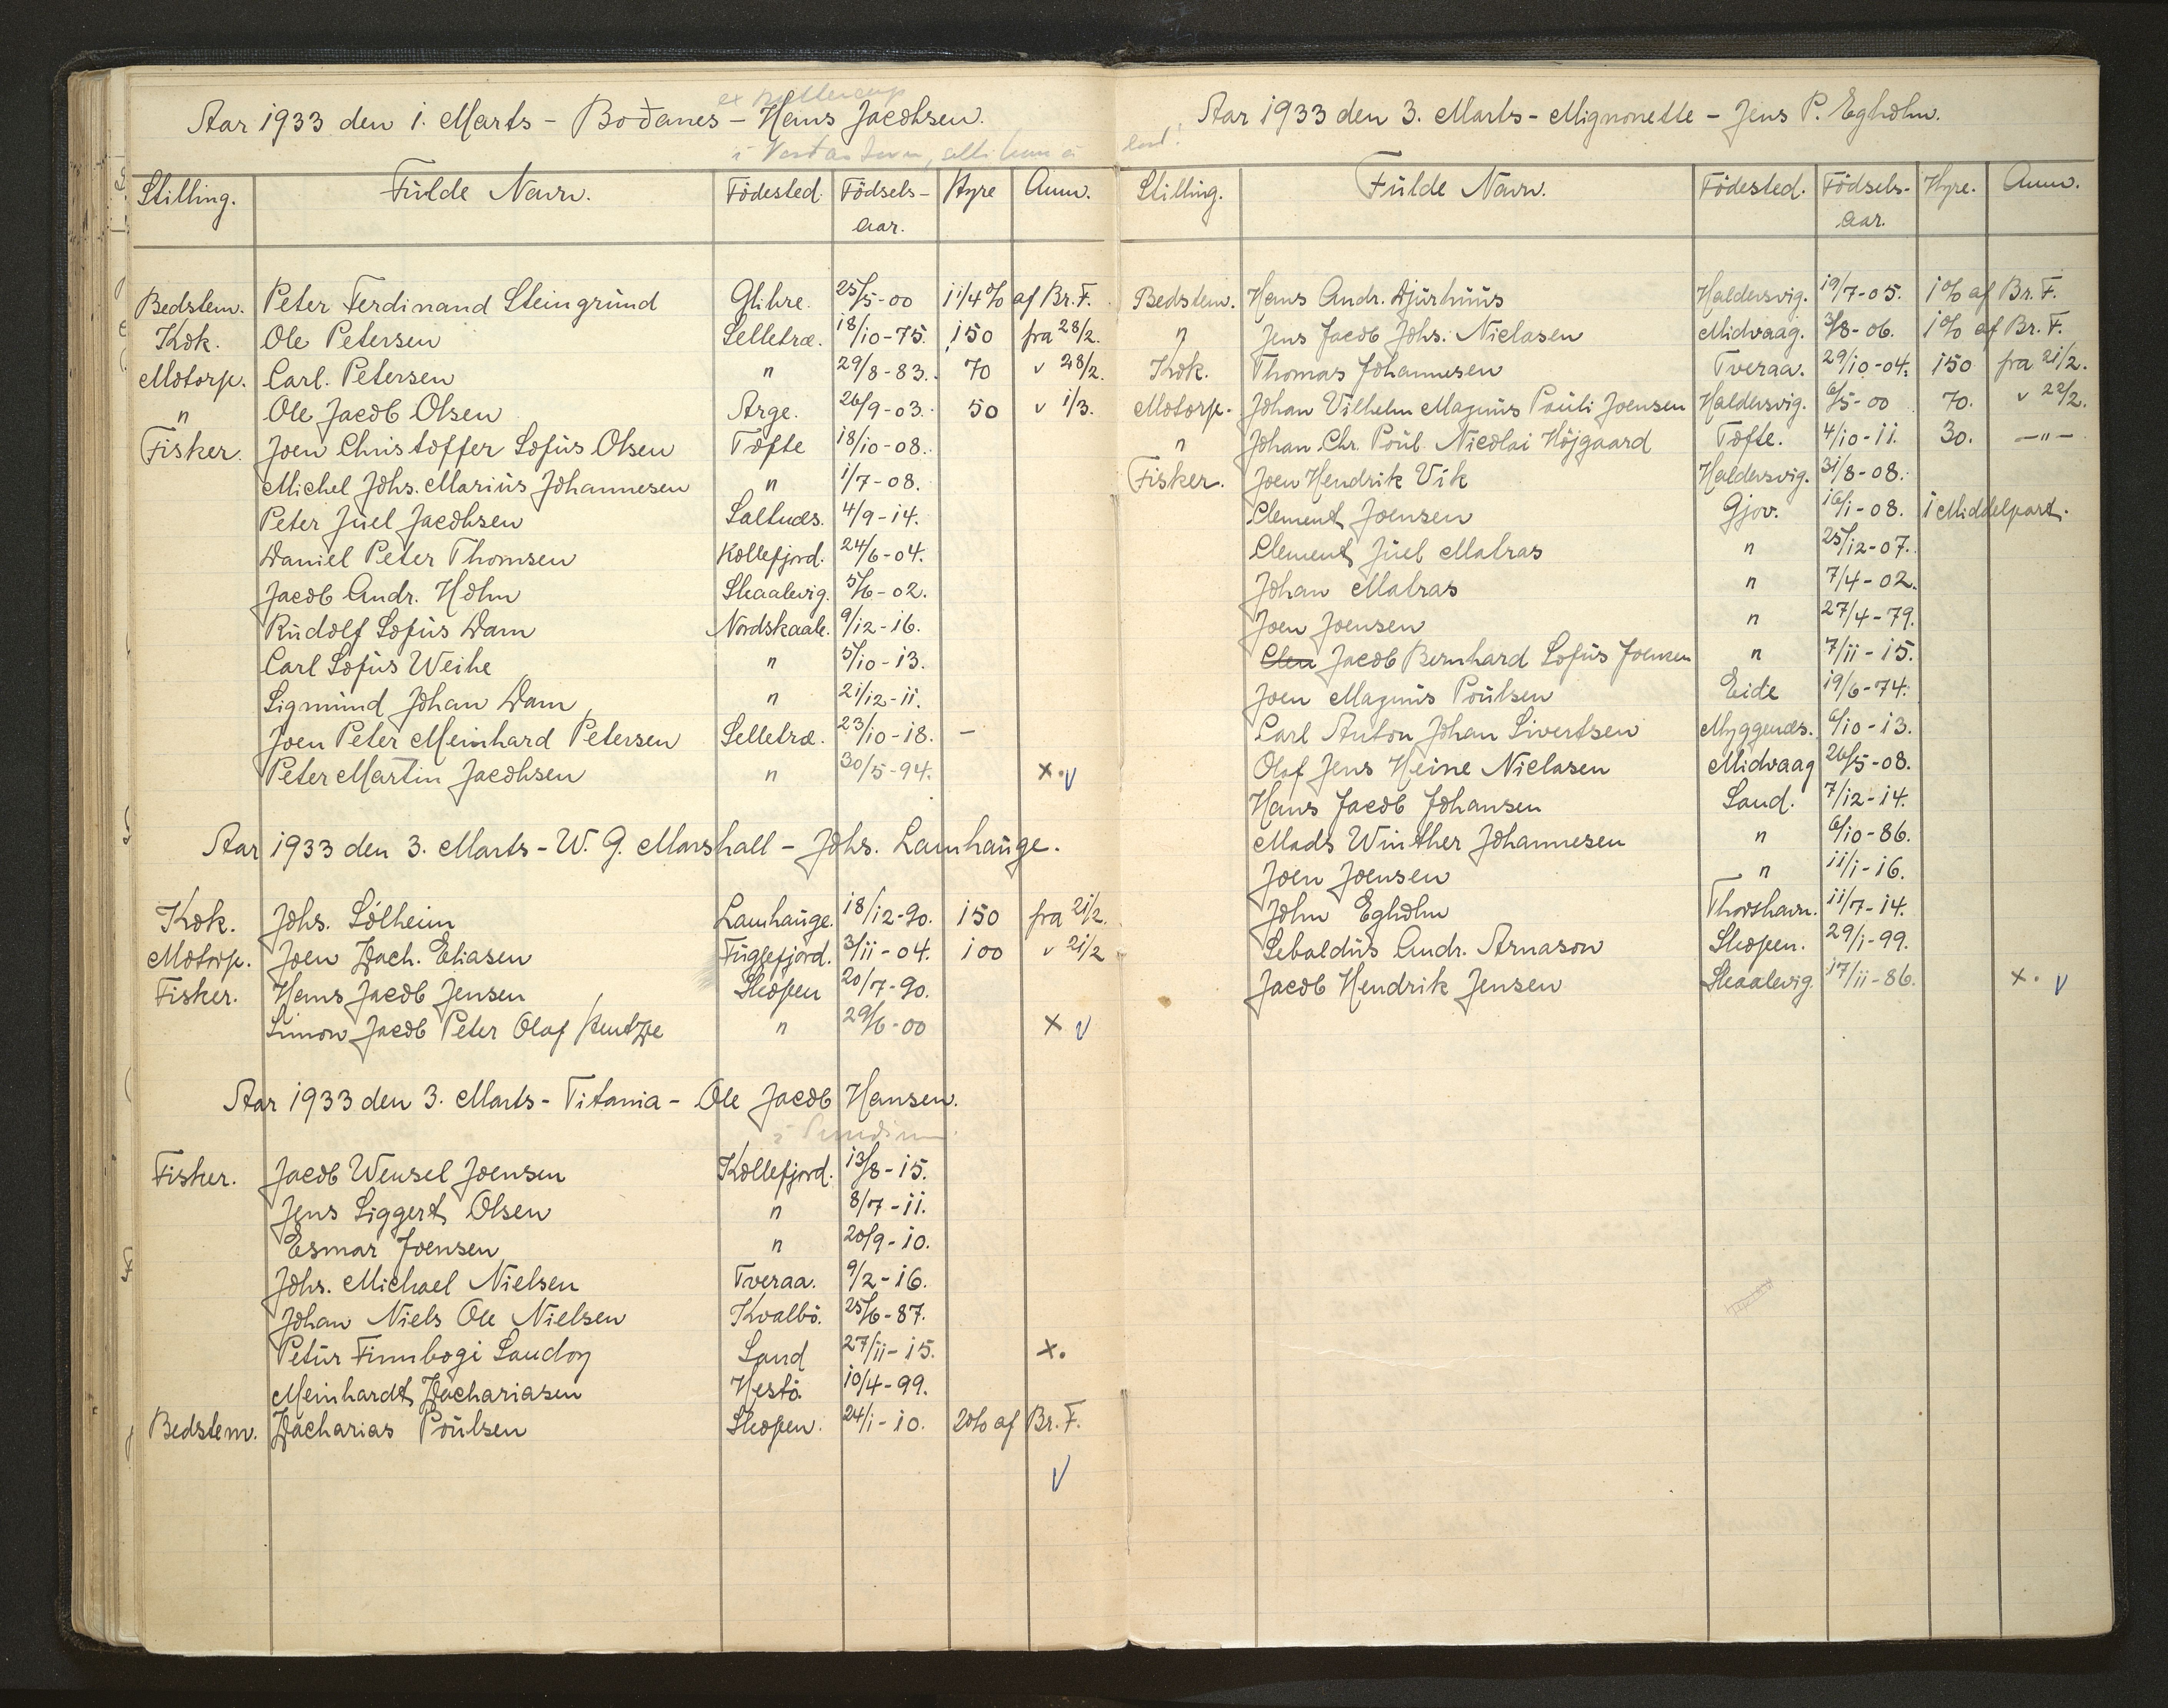 Aar 1933 den 1. Marts - Boðanes - Hans Jacobsen.
Stilling. Fulde Navn. Födested. Födsels- Hyre Anm.
aar.
Bedstem. Peter Ferdinand Steingrund Glibre. 25/5-00 1 1/4 % af Br. F.
Kok. Ole Petersen Selletræ. 18/10-75. 150 fra 28/2.
Motorp. Carl. Petersen " 29/8-83. 70 v 28/2.
" Ole Jacob Olsen Arge. 26/9-03. 50 v 1/3.
Fisker. Joen Christoffer Sofus Olsen Tofte 18/10-08.
Michel Johs. Marius Johannesen " 1/7-08.
Peter Juel Jacobsen Saltnes. 4/9-14.
Daniel Peter Thomsen Kollefjord. 24/6-04.
Jacob Andr. Holm Skaalevig. 5/6-02.
Rudolf Sofus Dam Nordskaale. 9/12-16.
Carl Sofus Weihe " 5/10-13.
Sigmund Johan Dam " 21/12-11.
Joen Peter Meinhard Petersen Selletræ. 23/10-18. -
Peter Martin Jacobsen " 30/5-94. x. v
Aar 1933 den 3. Marts - W. G. Marshall - Johs. Lamhauge.
Kok. Johs. Sólheim Lamhauge. 18/12-90. 150 fra 21/2.
Motorp. Joen Zach. Eliasen Fuglefjord. 3/11-04. 100 v 21/2
Fisker. Hans Jacob Jensen Skopen 20/7-90.
Simon Jacob Peter Olaf Hentze " 29/6-00 x v
Aar 1933 den 3. Marts - Titania - Ole Jacob Hansen.
Fisker. Jacob Wensel Joensen Kollefjord. 13/8-15.
Jens Siggert Olsen " 8/7-11.
Esmar Joensen " 20/9-10.
Johs. Michael Nielsen Tveraa. 9/2-16.
Johan Niels Ole Nielsen Kvalbö. 25/6-87.
Petur Finnbogi Sandoy Sand 27/11-15. x.
Meinhardt Zachariasen Hestö. 10/4-99.
Bedstem. Zacharias Poulsen Skopen. 24/1-10. 2% af Br. F.
v
Aar 1933 den 3. Marts - Mignonette - Jens P. Egholm.
Stilling. Fulde Navn. Födested. Födsels- Hyre. Anm.
aar.
Bedstem. Hans Andr. Djurhuus Haldersvig. 19/7-05. 1% af Br. F.
" Jens Jacob Johs. Niclasen Midvaag. 3/8-06. 1% af Br. F.
Kok. Thomas Johannesen Tveraa. 29/10-04. 150 fra 21/2.
Motorp. Johan Vilhelm Magnus Pauli Joensen Haldersvig. 6/5-00 70. v 22/2.
" Johan Chr. Poul Nicolai Höjgaard Tofte. 4/10-11. 30. -"-
Fisker. Joen Hendrik Vik Haldersvig. 31/8-08.
Clement Joensen Gjov. 16/1-08. 1 Middelpart.
Clement Juel Malras " 25/12-07.
Johan Malras " 7/4-02.
Joen Joensen " 27/4-79.
Clem Jacob Bernhard Sofus Joensen " 7/11-15.
Joen Magnus Poulsen Eide 19/6-74.
Carl Anton Johan Sivertsen Myggenæs. 6/10-13.
Olaf Jens Heine Niclasen Midvaag 26/5-08.
Hans Jacob Johansen Sand. 7/12-14.
Mads Winther Johannesen " 6/10-86.
Joen Joensen " 11/1-16.
John Egholm Thorshavn. 11/7-14.
Sebaldus Andr. Arnason Skopen. 29/1-99.
Jacob Hendrik Jensen Skaalevig. 17/11-86. x. v